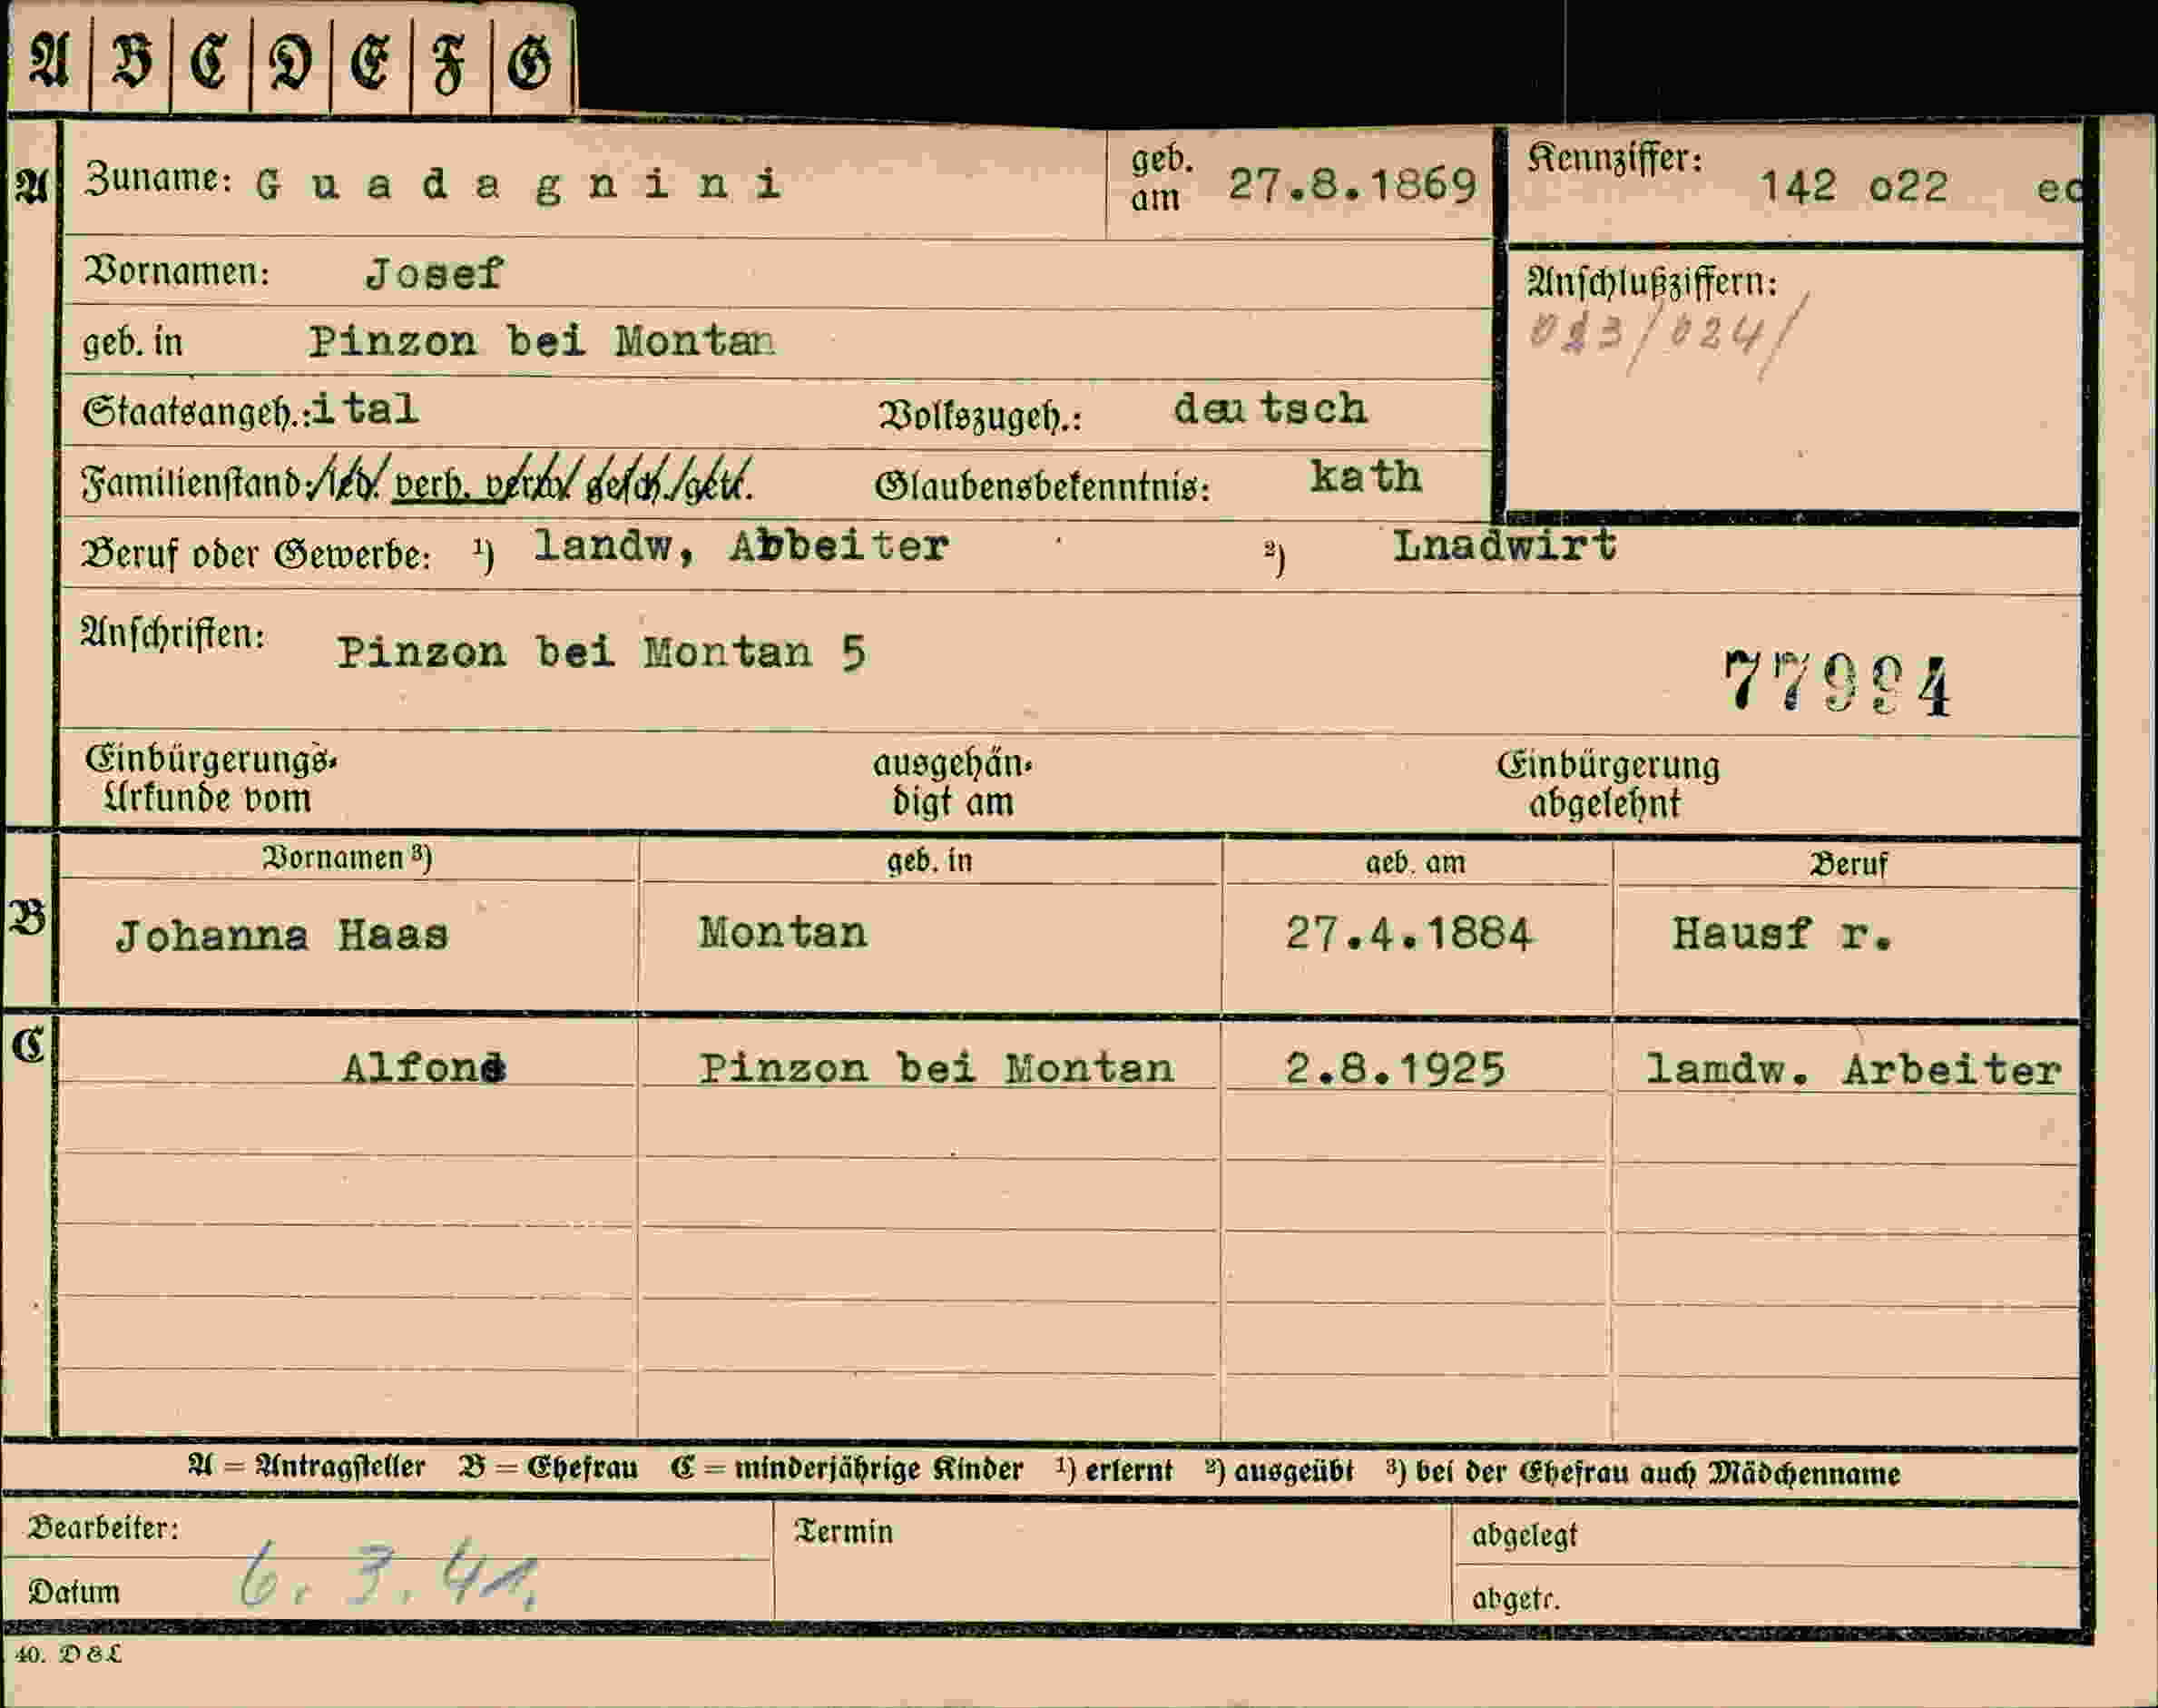 A B C D E F G
A Zuname: G u a d a g n i n i geb. am 27.8.1869 Kennziffer: 142 o22 ed
Vornamen: Josef Anschlußziffern:
/024/
geb. in Pinzon bei Montan
Staatsangeh.: ital Volkszugeh.: deutsch
Familienstand: led. verh. verw. gesch. getr. Glaubensbekenntnis: kath
Beruf oder Gewerbe: 1) landw, Abbeiter 2) Lnadwirt
Anschriften: Pinzon bei Montan 5
77994
Einbürgerungs- ausgehän- Einbürgerung
Urkunde vom digt am abgelehnt
Vornamen 3) geb. in geb. am Beruf
B Johanna Haas Montan 27.4.1884 Hausf r.
C Alfons Pinzon bei Montan 2.8.1925 lamdw. Arbeiter
A = Antragsteller B = Ehefrau C = minderjährige Kinder 1) erlernt 2) ausgeübt 3) bei der Ehefrau auch Mädchenname
Bearbeiter: Termin abgelegt
Datum 6. 3. 41. abgetr.
40. D&L